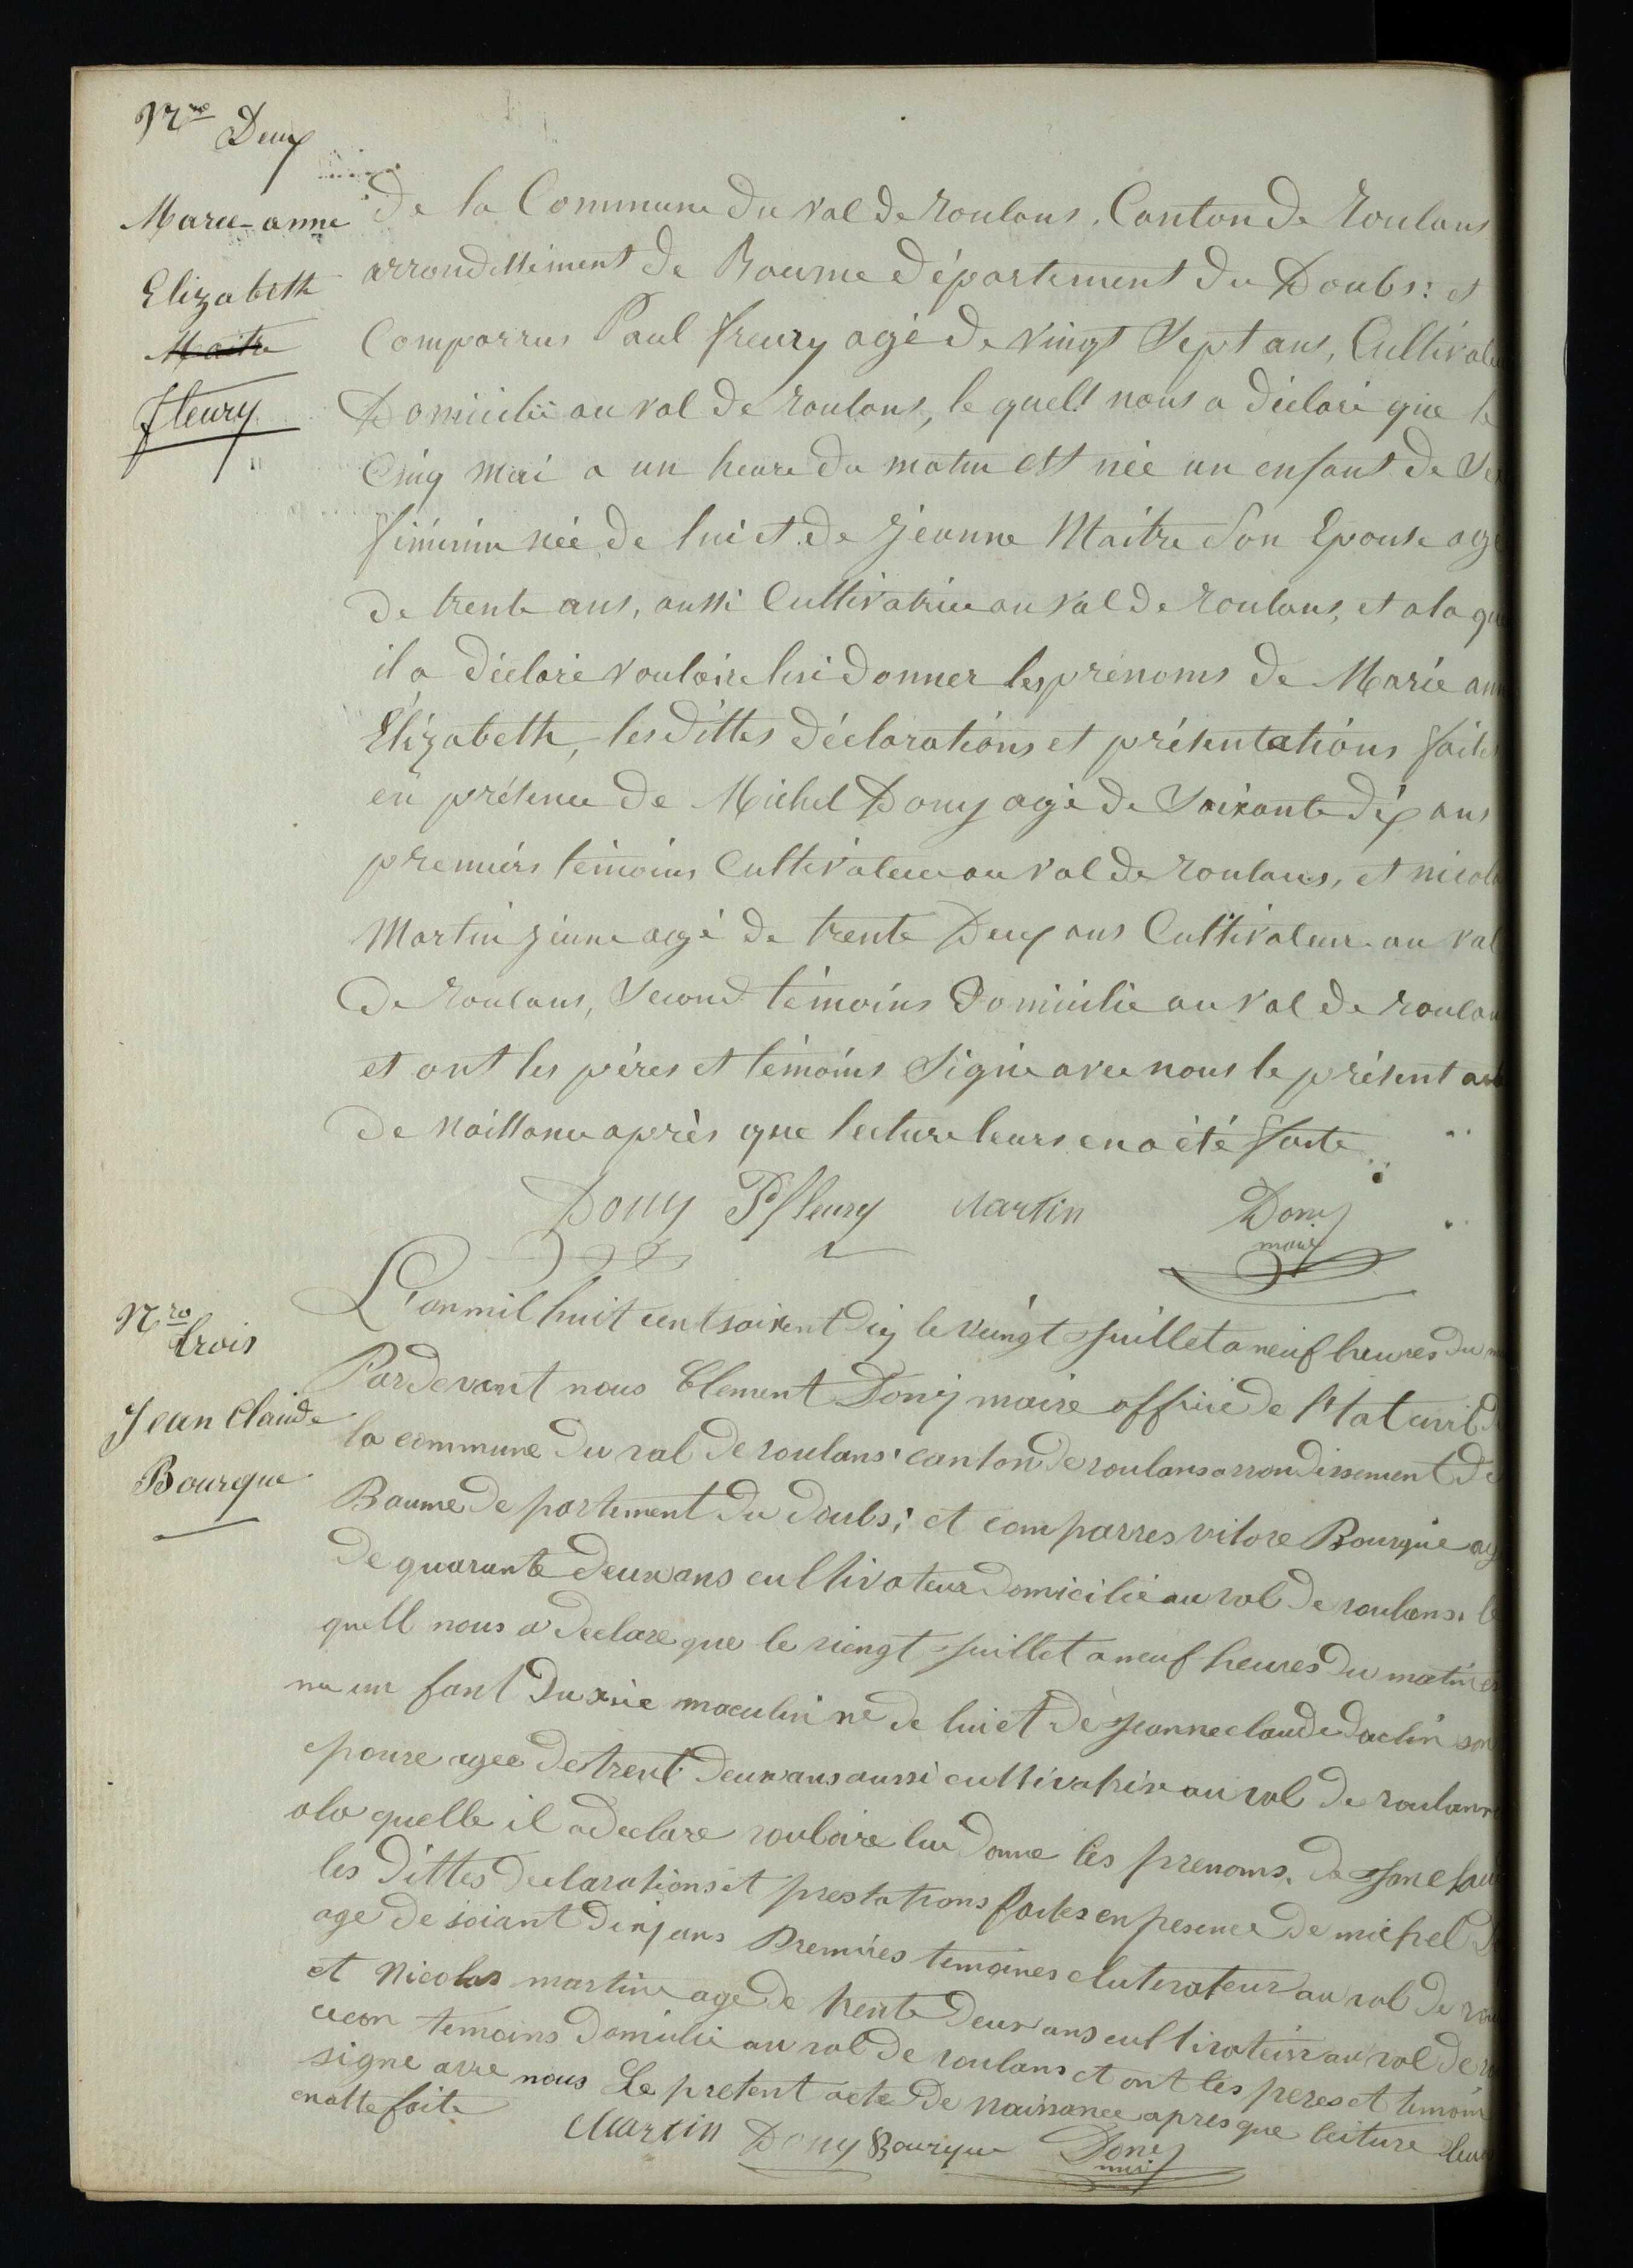 Nro Deux
Marie-anne
Elizabeth
Maitre
fleury
de la Commune du val de roulans, Canton de roulans
arrondissement de Baume département du Doubs: et
Comparrus Paul fleury agé de vingt Sept ans, Cultivateu
Domicilié au val de roulans, le quell nous a déclaré que le
Cinq mai a un heure du matin est née un enfant de Sex
féminin née de lui et de jeanne Maitre Son Epouse agé
de trente ans, aussi Cultivatrice au val de roulans, et a la que
il a déclaré vouloire lui donner les prénoms de Marie ann
Elizabeth, les dittes déclarations et présentations faites
en présence de Michel Dony agé de Soixante dix ans
premiérs témoins Cultivateur au val de roulans, et nicola
Martin jeune agé de trente Deux ans Cultivateur au val
de roulans, Second témoins Domicilié au val de roulan
et ont les péres et témoins Signé avec nous le présent acte
de naissance après que lecture leurs en a été faite
Dony P fleury Martin Dony
maire
Nro
trois
Jean Claude
Bourque
L'an mil huit cent soixent dix le vingt juillet a neuf heures du m
Pardevant nous Clement Dony maire officié de l'etat civil de
la commune du val de roulans canton de roulans arrondissement de
Baume de partement du doubs; et comparres Bourque ag
de quarante deux ans cultivateur domicilié au val de roulans, le
quell nous a declare que le viengt juillet a neuf heures du matin es
ne un fant du maculin ne de lui et de jeanne claude daclin son
epouse agee de trent deux ans aussi cultivatrive au val de roulans
a la quelle il a declare vouloire lui donne les prenoms, de
les dittes declarations et prestations faites en presence de michel D
age de soiant dix ans Premires temoines cluterateur au val de rou
et Nicolas martin age de trente deux ans cultivateur au val de r
cecon temoins domicilie au val de roulans et ont les peres et temoin
signe avre nous Le pretent acte de naissance apres que leiture leur
en a tte faite
Martin Dony Bourque Dony
maire